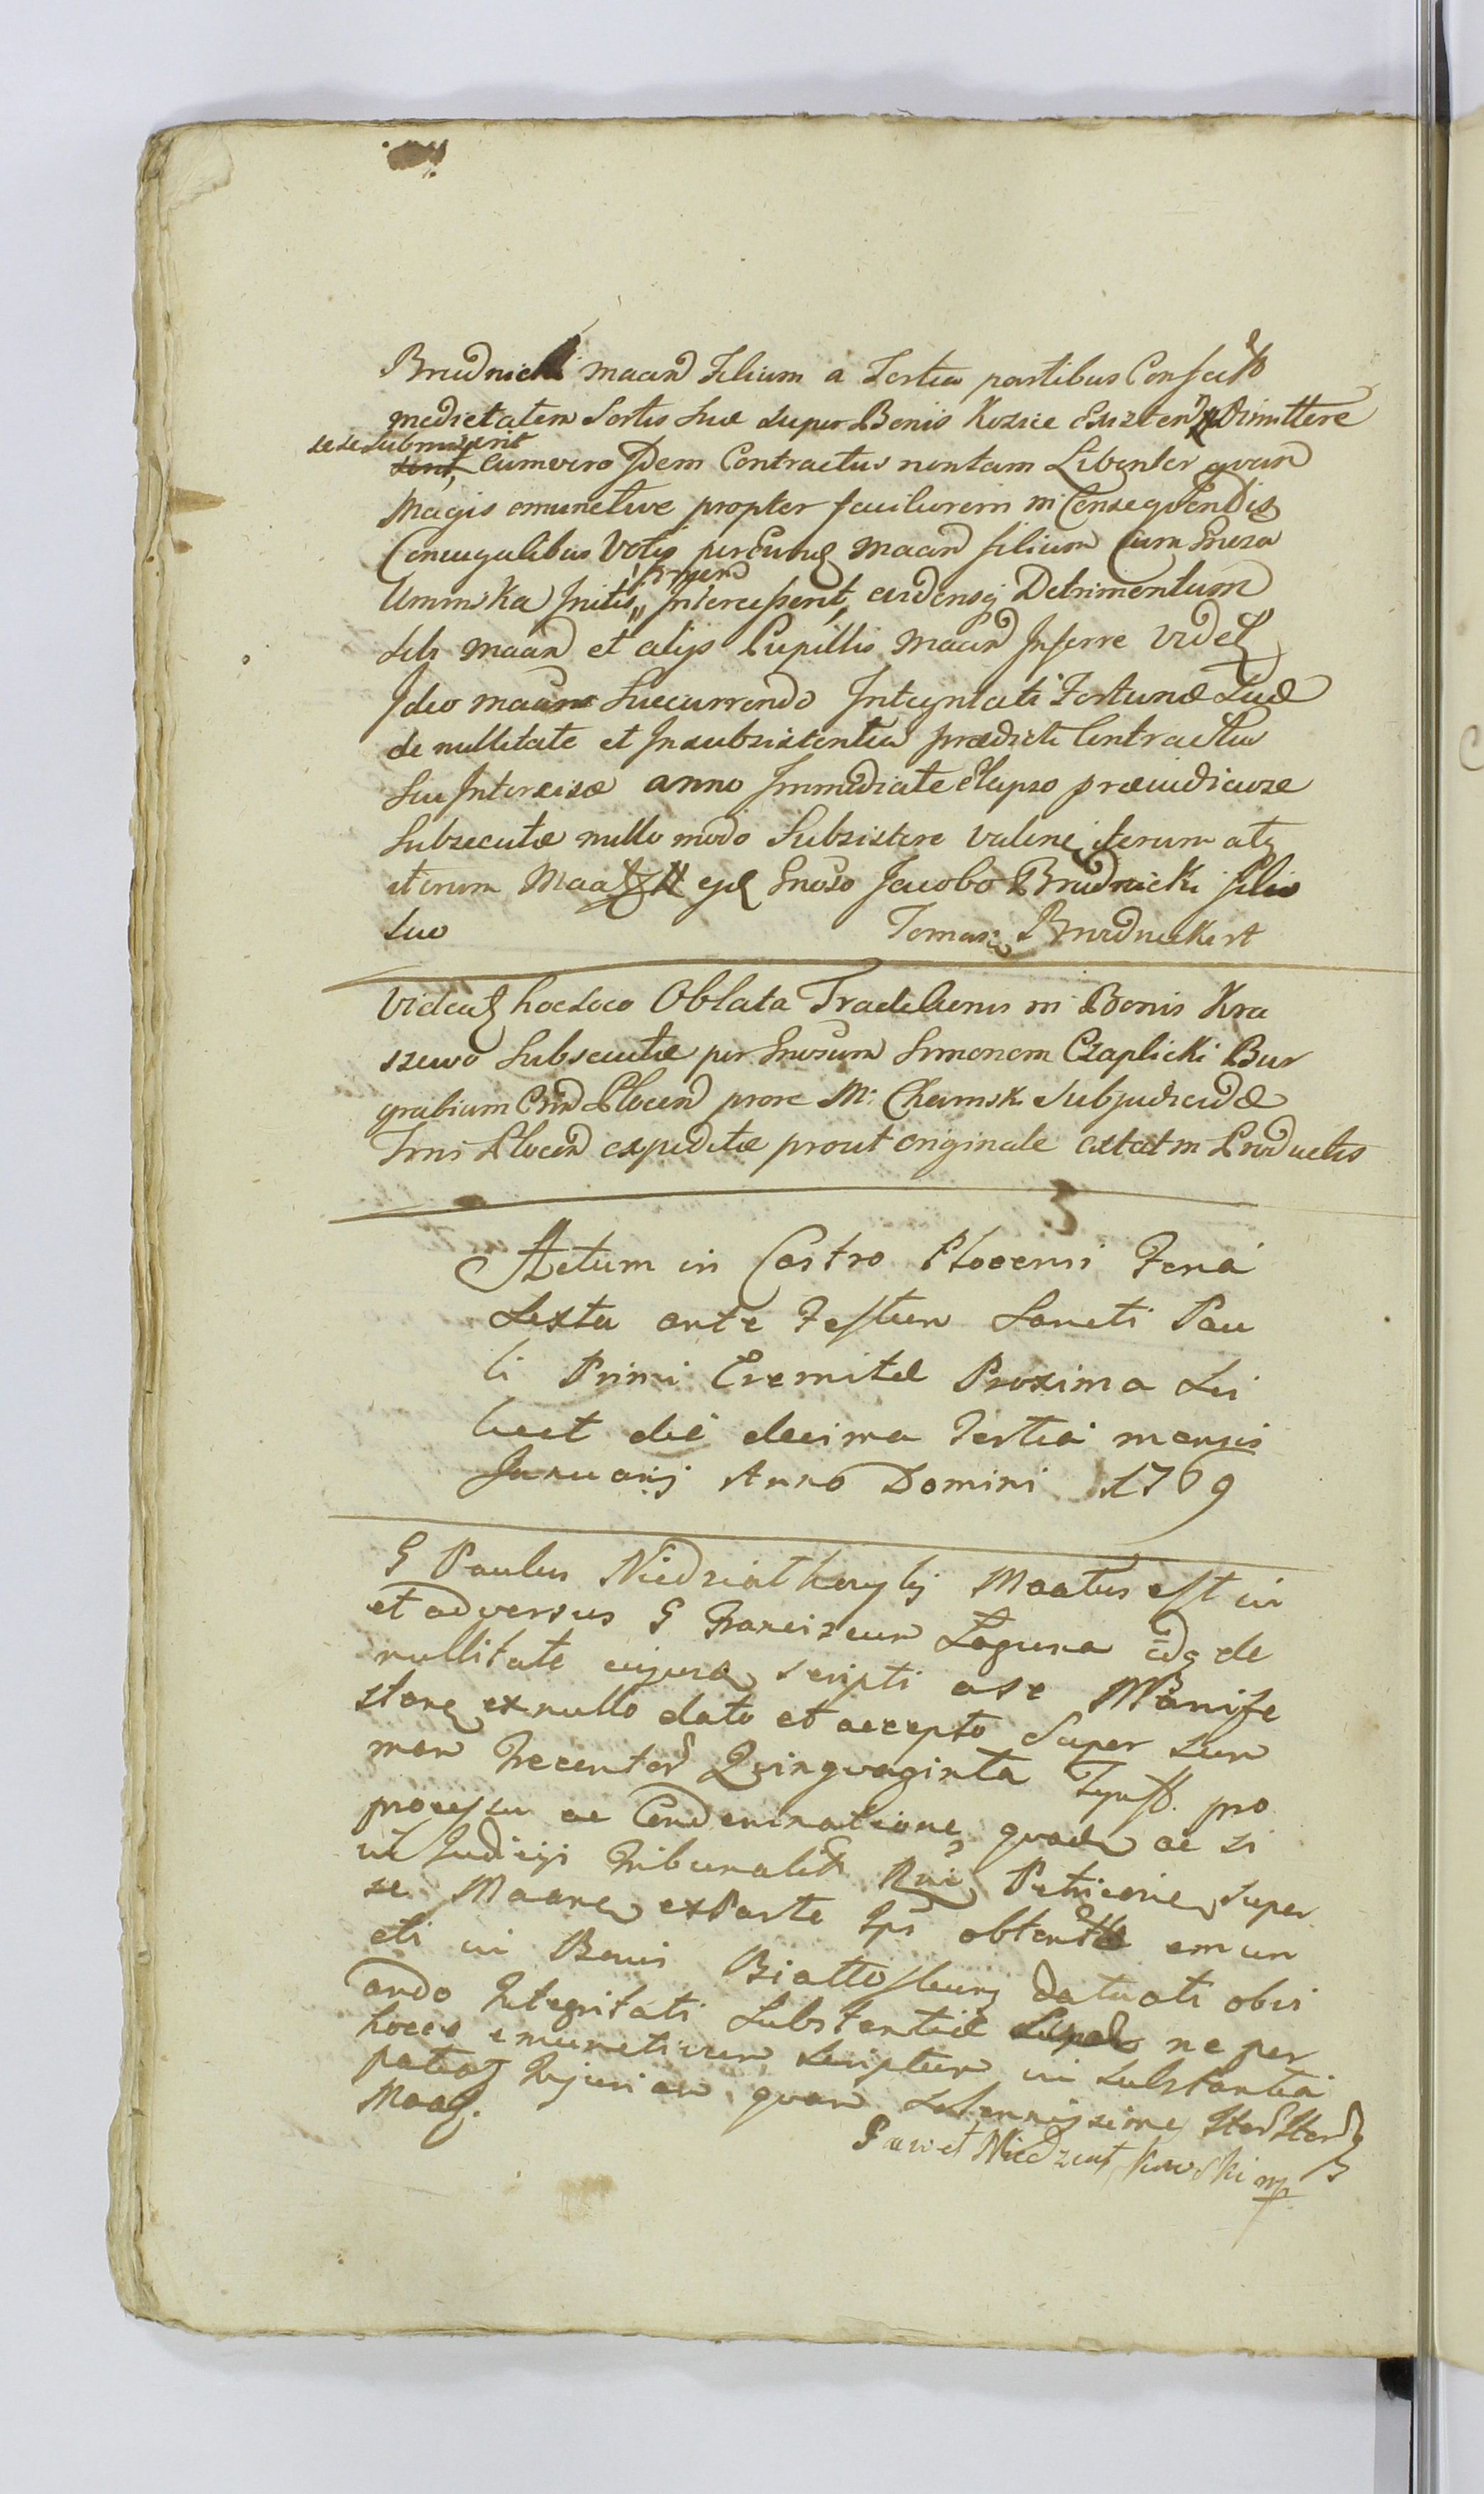 Brudnicki maan Filium a Tertia partibus
medietatem Sortis Suæ super Bonis Kozice Existen Dimittere
sese submiserit
cumvero Idem Contractus nontam Libenter quam
Magis emunctive propter faciliorem in Consequendis
Conjugalibus Votis per Eund maan filium Cum Gnesa
Uminska Initis, Intercesserit, evidensq Detrimentum
Sibi maan et alijs Pupillis maan Inferre Videt
Ideo maans Succurrendo Integritati Fortunæ Suæ
de nullitate et Insubsistentia prædicti Contractus
Seu Intercisæ anno Immediate Elapso præiudiciose
Subsecutæ nullo modo Subsistere Valene iterum atq
iterum Maat Gnoso Jacobo Brudnicki filio
suo
Tomasz Brudnicki
Videat hocloco Oblata Traditionis in Bonis Kra
szewo Subsecutæ per Gnosum Simonem Czaplicki Bur
grabium Plocen prore M: Chamsk Subjudicid
Trris Plocen expeditæ prout originale extat in Productis
Actum in Castro Plocensi Feria
Sexta ante Festum Sancti Pau
li Primi Eremitæ Proxima Sci
licet die decima Tertia mensis
Januarij Anno Domini 1769
G Paulus Niedziałkowski Maatus est in
et adversus G Franciscum Łaguna de
nullitate cujusd scripti a se Manife
stane ex nullo dato et accepto Super Sum
mam Trecentor Quinquaginta Tynff. pro
processu ac Condemnatione quad ac si
in Judicijs Tribunalit Petricovie super
se Maane exParte obtent emun
cti in Bonis datuati obvi
ando Integritati Substantiæ ne per
hocce emunctivum scriptum in Substantia
patiat Injuriam quam Solennissime
Maat.
Paweł Niedziałkowski mp